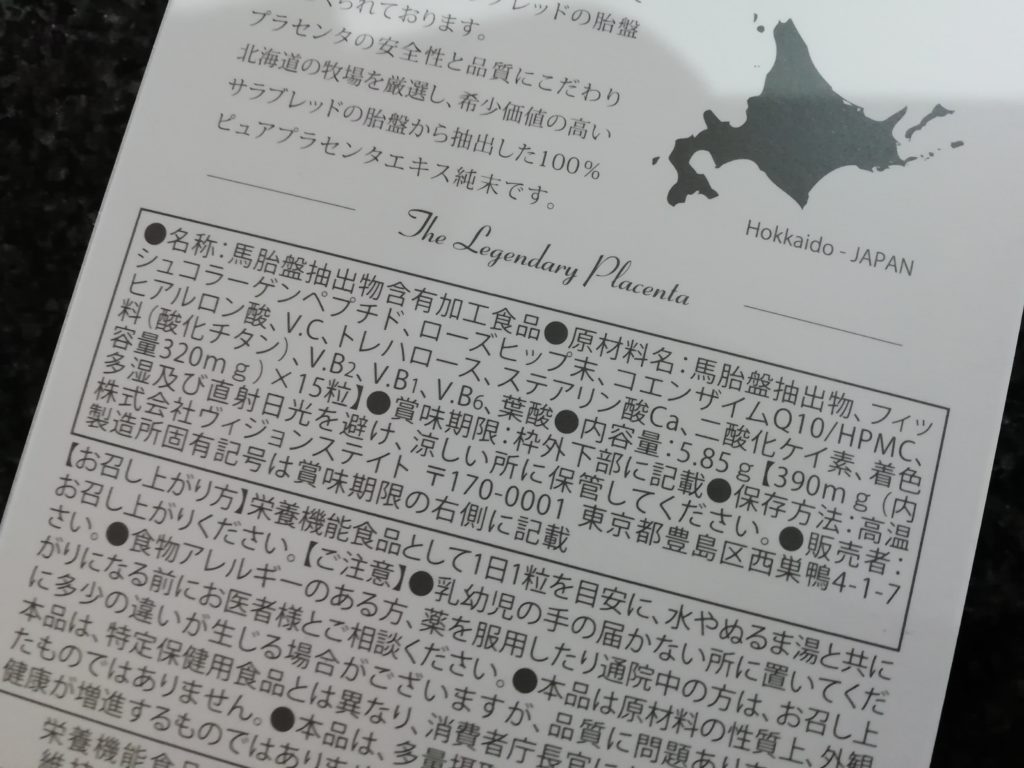 られております。
ブレッドの胎盤
プラセンタの安全性と品質にこだわり
北海道の牧場を厳選し、希少価値の高い
サラブレッドの胎盤から抽出した100%
ピュアプラセンタエキス純末です。
Hokkaido - JAPAN
The Legendary Placenta
●名称：馬胎盤抽出物含有加工食品●原材料名：馬胎盤抽出物、フィッ
シュコラーゲンペプチド、ローズヒップ末、コエンザイムQ10/HPMC、
ヒアルロン酸、V.C、トレハロース、ステアリン酸Ca、二酸化ケイ素、着色
料(酸化チタン)、V.B2、V.B1、V.B6、葉酸●内容量：5.85g【390mg(内
容量320mg)×15粒】●賞味期限：枠外下部に記載●保存方法：高温
多湿及び直射日光を避け、涼しい所に保管してください。●販売者：
株式会社ヴィジョンステイト 〒170-0001 東京都豊島区西巣鴨4-1-7
製造所固有記号は賞味期限の右側に記載
【お召し上がり方】栄養機能食品として1日1粒を目安に、水やぬるま湯と共に
お召し上がりください。【ご注意】●乳幼児の手の届かない所に置いてくだ
さい。●食物アレルギーのある方、薬を服用したり通院中の方は、お召し上
がりになる前にお医者様とご相談ください。●本品は原材料の性質上、外観
に多少の違いが生じる場合がございますが、品質に問題あり
本品は、特定保健用食品とは異なり、消費者庁長官に
たものではありません。●本品は、多量摂
健康が増進するものではあり
栄養機能食品